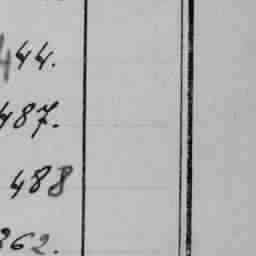 444.
487.
488
362.